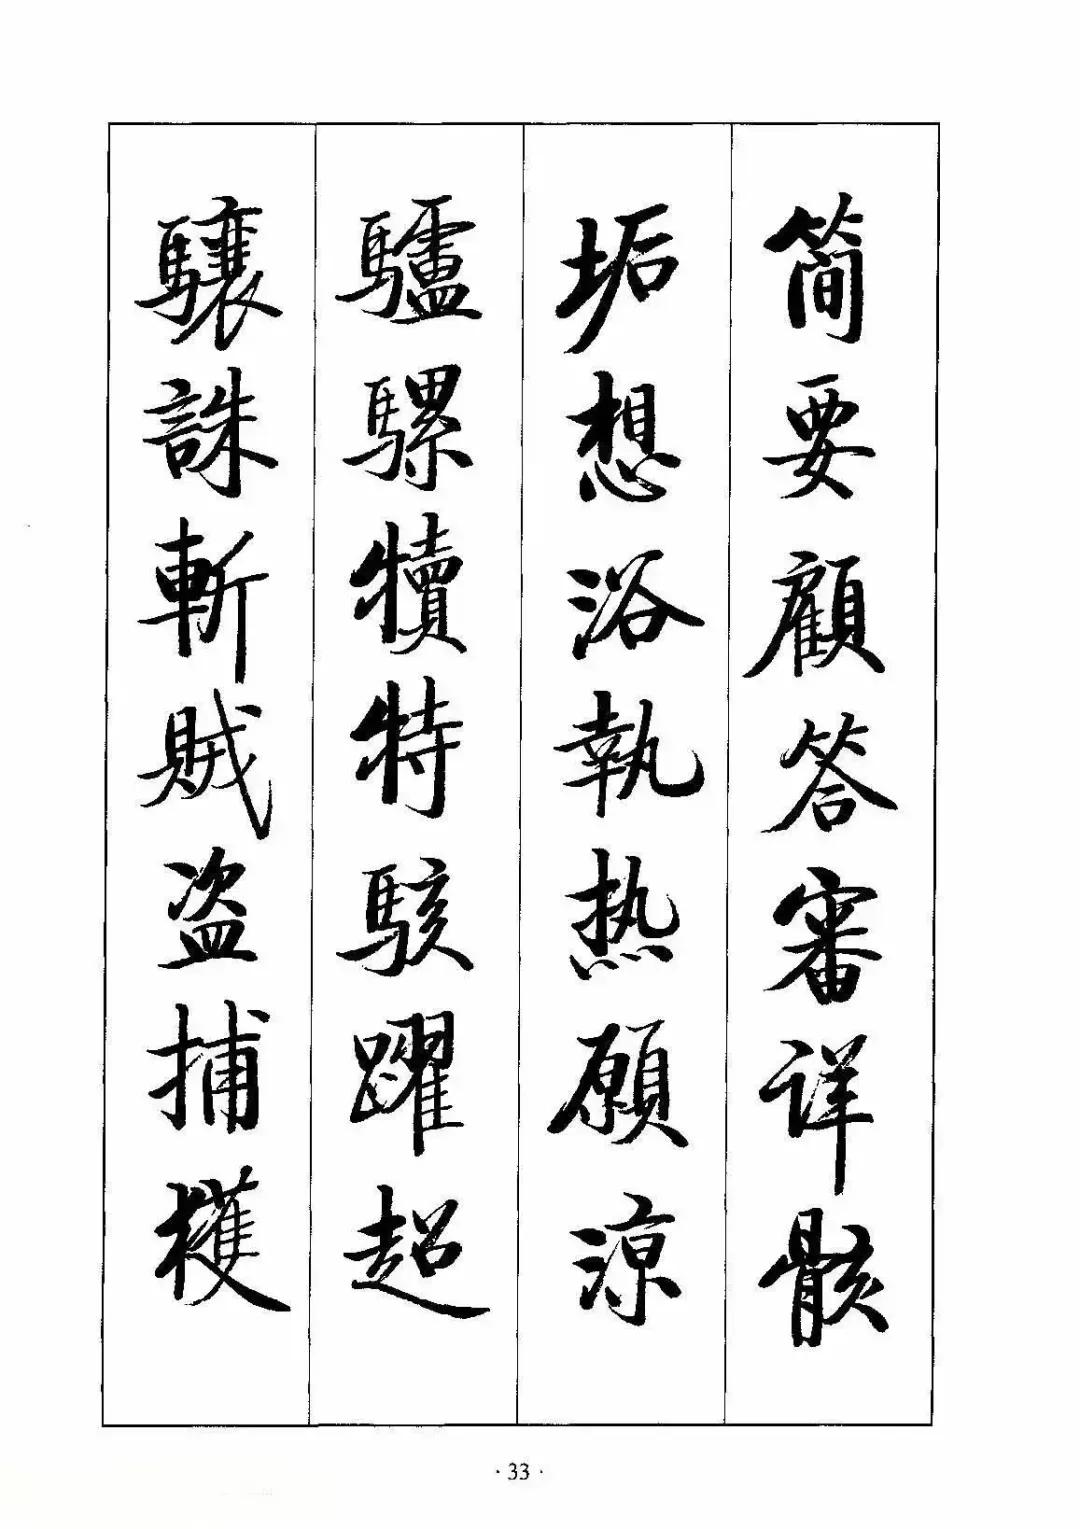 简要顧答審詳骸
垢想浴執热願涼
驢騾犢特駭躍超
驤誅斬賊盗捕獲
·33·